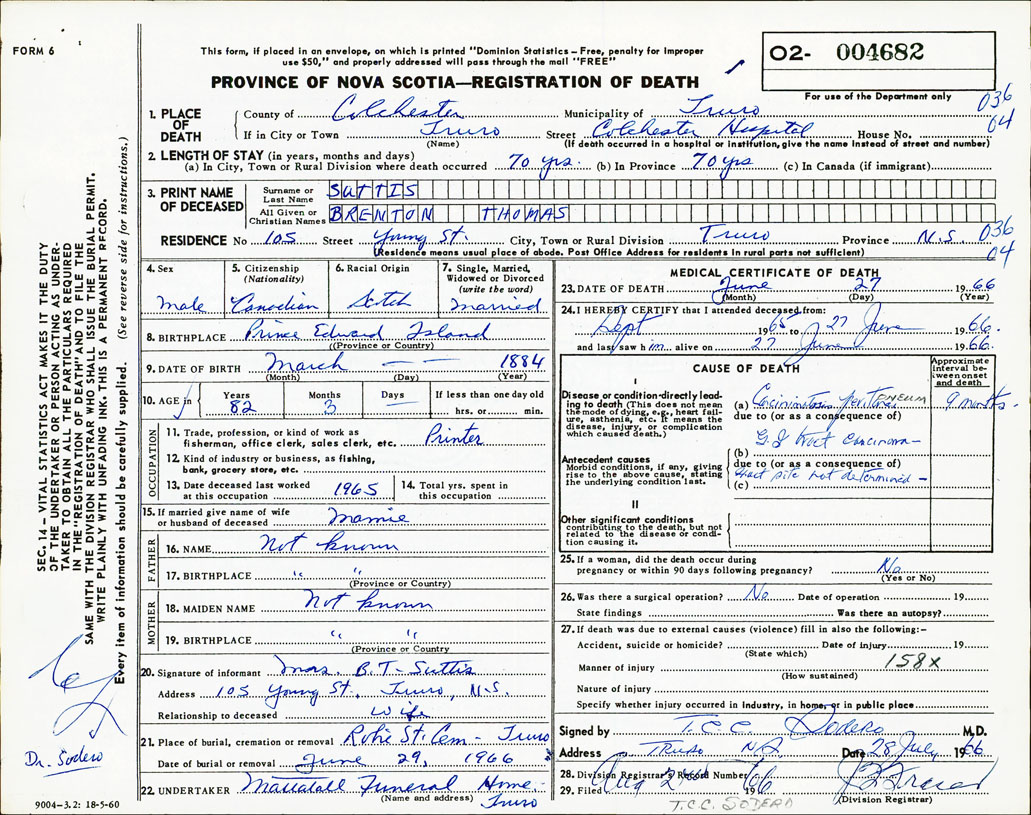 FORM 6
This form, if placed in an envelope, on which is printed "Dominion Statistics – Free, penalty for improper
use $50," and properly addressed will pass through the mail "FREE"
PROVINCE OF NOVA SCOTIA—REGISTRATION OF DEATH
02- 004682
For use of the Department only
036
04
1. PLACE OF DEATH
County of Colchester Municipality of Truro
If in City or Town Truro Street Colchester Hospital House No.
(Name) (If death occurred in a hospital or institution, give the name instead of street and number)
2. LENGTH OF STAY (in years, months and days)
(a) In City, Town or Rural Division where death occurred 70 yrs. (b) In Province 70 yrs (c) In Canada (if immigrant)
3. PRINT NAME OF DECEASED
Surname or Last Name SUTTIS
All Given or Christian Names BRENTON THOMAS
RESIDENCE No 105 Street Young St. City, Town or Rural Division Truro Province N.S. 036
04
(Residence means usual place of abode. Post Office Address for residents in rural parts not sufficient)
4. Sex
Male
5. Citizenship
(Nationality)
Canadian
6. Racial Origin
Scotch
7. Single, Married,
Widowed or Divorced
(write the word)
Married
8. BIRTHPLACE Prince Edward Island
(Province or County)
9. DATE OF BIRTH March — — 1884
(Month) (Day) (Year)
10. AGE in
Years Months Days If less than one day old
82 3 hrs. or min.
OCCUPATION
11. Trade, profession, or kind of work as
fisherman, office clerk, sales clerk, etc. Printer
12. Kind of industry or business, as fishing,
bank, grocery store, etc.
13. Date deceased last worked
at this occupation 1965
14. Total yrs. spent in
this occupation
15. If married give name of wife
or husband of deceased Mamie
FATHER
16. NAME Not known
17. BIRTHPLACE " "
(Province or Country)
MOTHER
18. MAIDEN NAME Not known
19. BIRTHPLACE " "
(Province or Country
20. Signature of informant Mrs. B.T. Suttis
Address 105 Young St. Truro, N.S.
Relationship to deceased wife
21. Place of burial, cremation or removal Robie St. Cem - Truro
Date of burial or removal June 29, 1966
22. UNDERTAKER Mattatall Funeral Home
(Name and address) Truro
MEDICAL CERTIFICATE OF DEATH
23. DATE OF DEATH June 27 1966
(Month) (Day) (Year)
24. I HEREBY CERTIFY that I attended deceased from:
Sept 1965 to 27 June 1966
and last saw him alive on 27 June 1966
CAUSE OF DEATH
Approximate
interval be-
tween onset
and death
I
Disease or condition directly lead-
ing to death (This does not mean
the mode of dying, e.g., heart fail-
ure, asthenia, etc. It means the
disease, injury, or complication
which caused death.)
(a) PERITONEUM 9 months.
due to (or as a consequence of)
G.I tract Carcinoma –
Antecedent causes
Morbid conditions, if any, giving
rise to the above cause, stating
the underlying condition last.
(b)
due to (or as a consequence of)
exact site not determined –
(c)
II
Other significant conditions
contributing to the death, but not
related to the disease or condi-
tion causing it.
25. If a woman, did the death occur during
pregnancy or within 90 days following pregnancy? No
(Yes or No)
26. Was there a surgical operation? No Date of operation 19
State findings Was there an autopsy?
27. If death was due to external causes (violence) fill in also the following:–
Accident, suicide or homicide? Date of injury 19
(State which)
158x
Manner of injury
(How sustained)
Nature of injury
Specify whether injury occurred in industry, in home, or in public place
Signed by T.C.C. Sodero M.D.
Address Truro NS Date 28 July 1966
28. Division Registrar's Record Number
29. Filed Aug 2 1966
(Division Registrar)
T.C.C. SODERO
SEC. 14 – VITAL STATISTICS ACT MAKES IT THE DUTY
OF THE UNDERTAKER OR PERSON ACTING AS UNDER-
TAKER TO OBTAIN ALL THE PARTICULARS REQUIRED
IN THE "REGISTRATION OF DEATH" AND TO FILE THE
SAME WITH THE DIVISION REGISTRAR WHO SHALL ISSUE THE BURIAL PERMIT.
WRITE PLAINLY WITH UNFADING INK. THIS IS A PERMANENT RECORD.
Every item of information should be carefully supplied. (See reverse side for instructions.)
Dr. Sodero
9004-3.2: 18-5-60